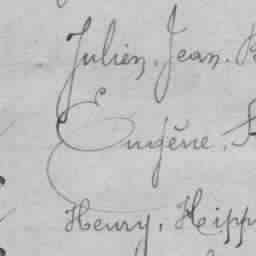 Julien. Jean.
Eugène.
Henry. Hipp